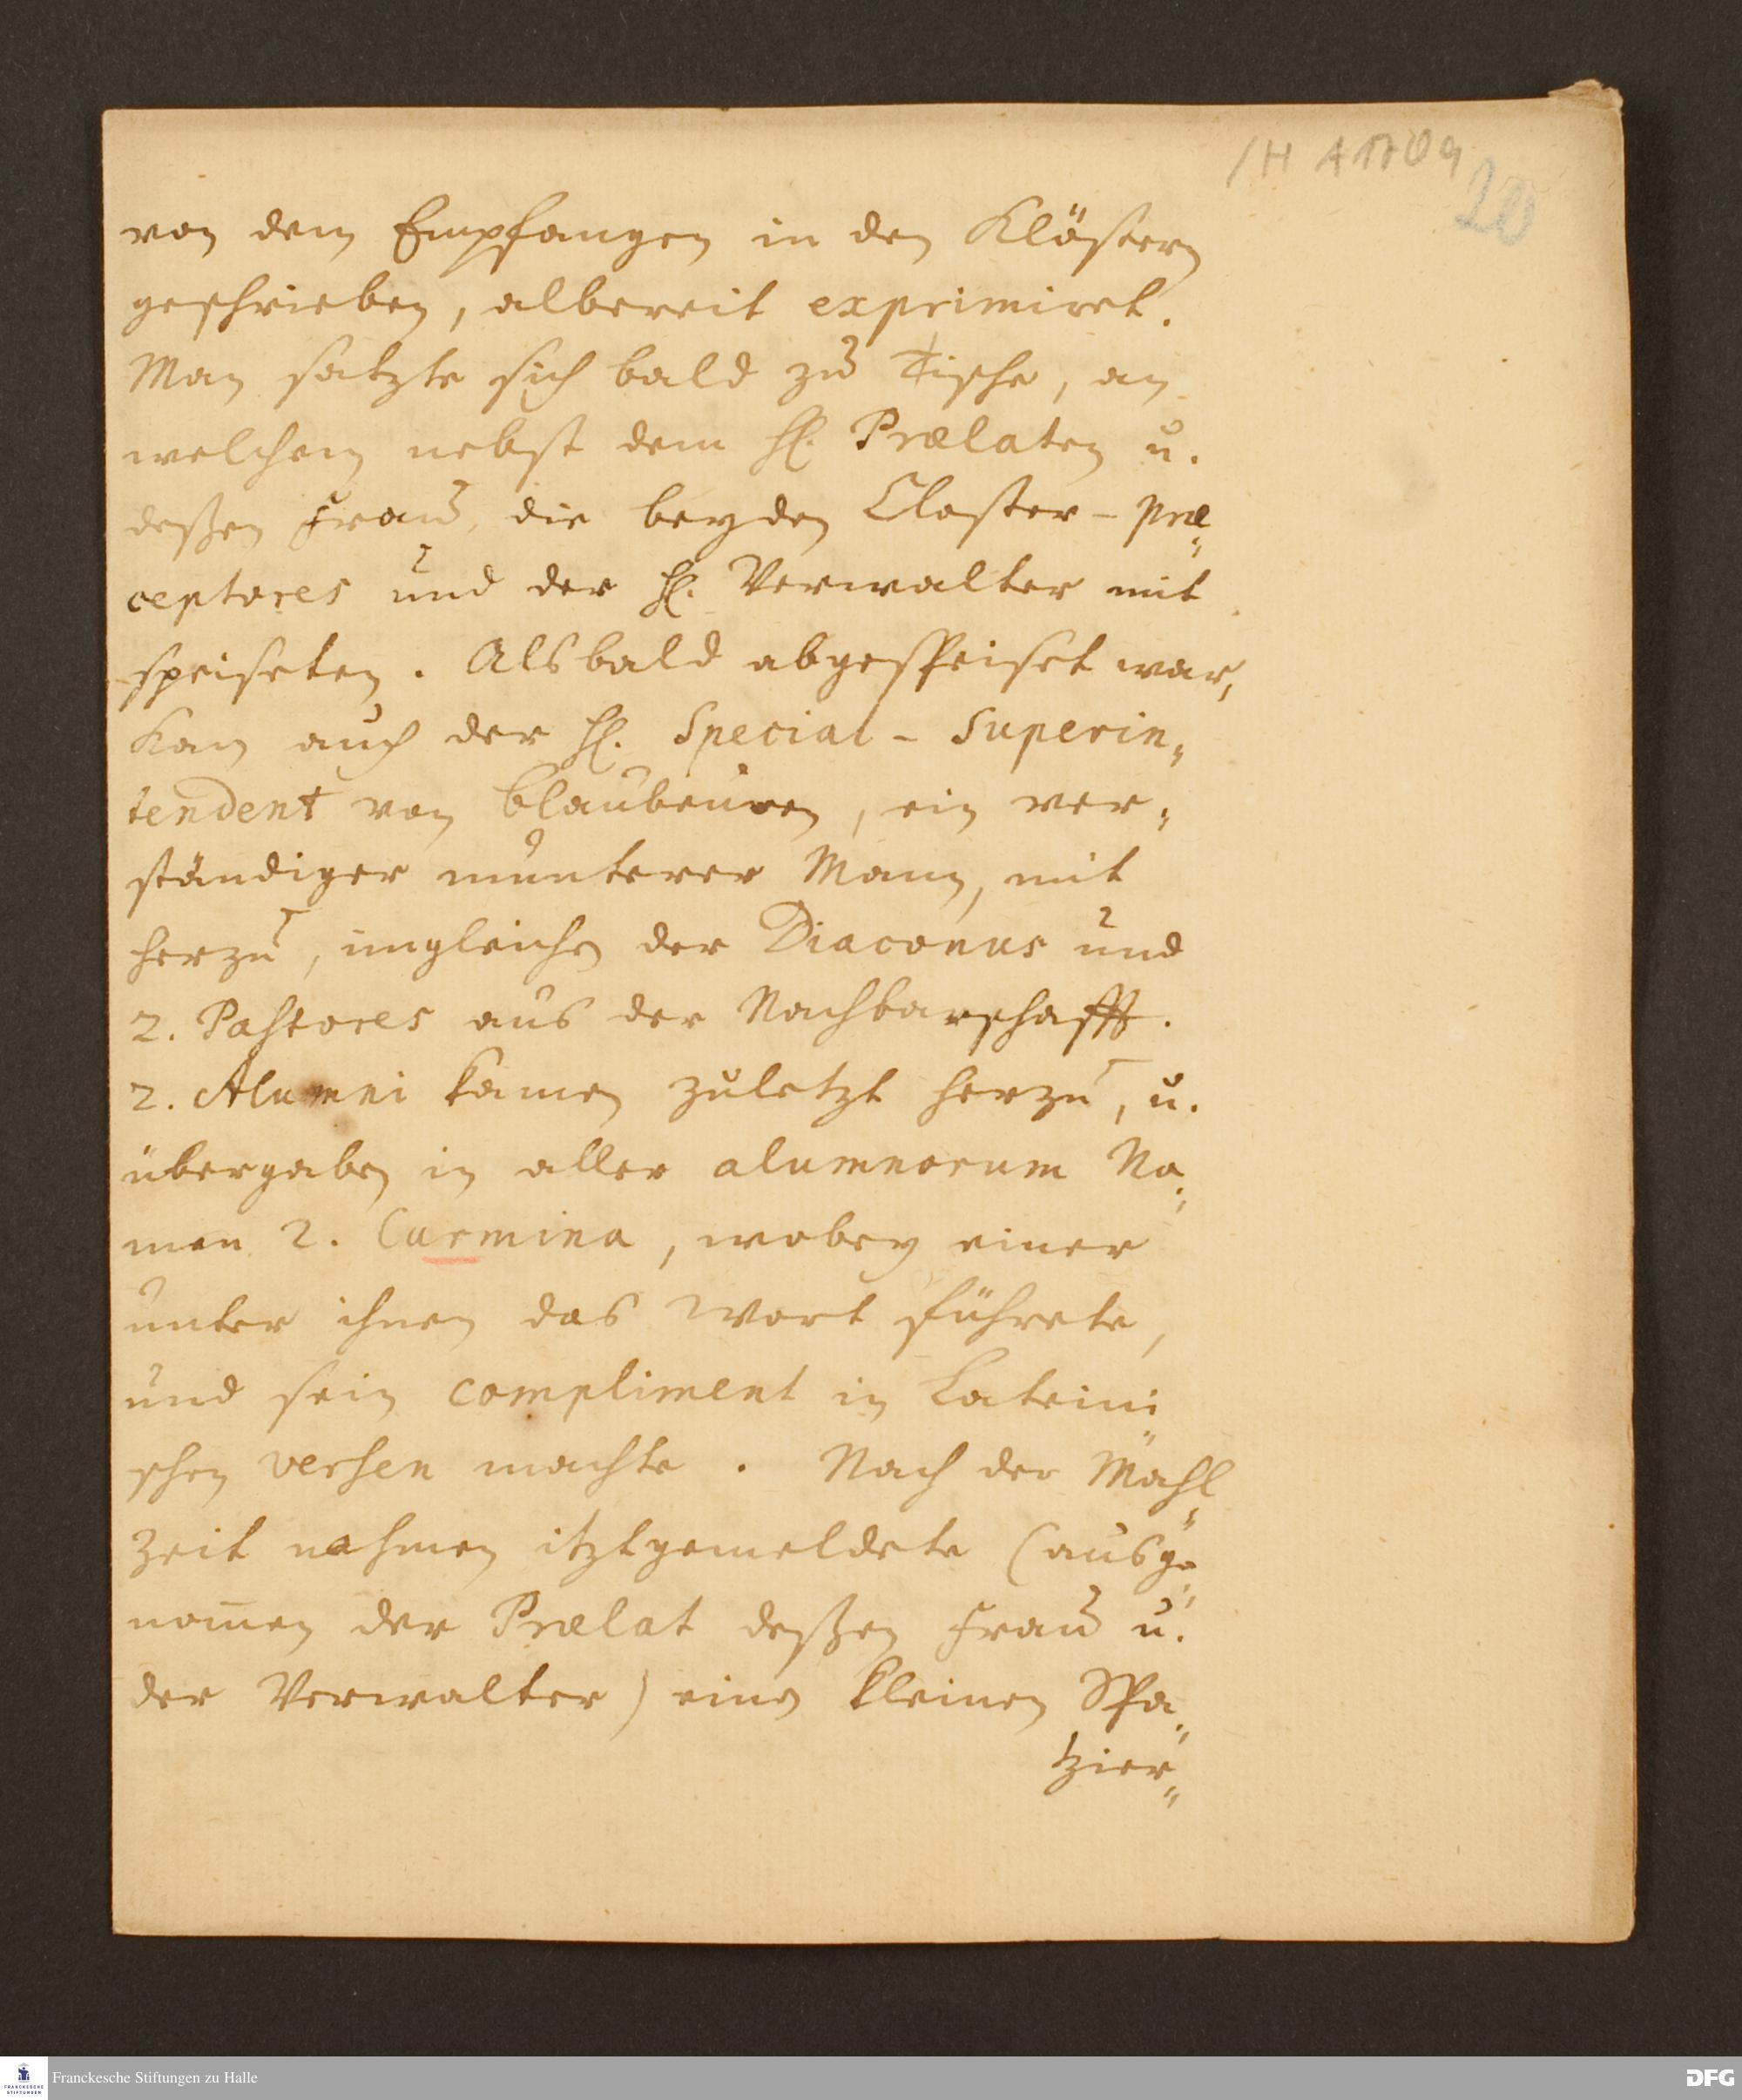 /H A 170 9
20
von dem Empfangen in den Klöstern
geschrieben, albereit exprimiret.
Man satzte sich bald zu Tische, an
welchem nebst dem H. Prælaten u.
deßen Frau, die beyden Closter-Præ„
ceptores und der H. Verwalter mit
speiseten. Alsbald abgespeiset war,
kam auch der H. Special-Superin„
tendent von Blaubeuren, ein ver„
ständiger munterer Mann, mit
herzu, imgleichen der Diaconus und
2. Pastores aus der Nachbarschafft.
2. Alumni kamen zuletzt herzu, u.
übergaben in aller alumnorum Na„
men 2. Carmina, wobey einer
unter ihnen das Wort führete,
und sein compliment in Lateini„
schen versen machte. Nach der Mahl„
zeit nahmen itztgemeldete (ausge„
nom̅en der Prælat deßen Frau u.
der Verwalter) einen kleinen Spa„
tzier„
Franckesche Stiftungen zu Halle
FRANCKESCHE
STIFTUNGEN
DFG